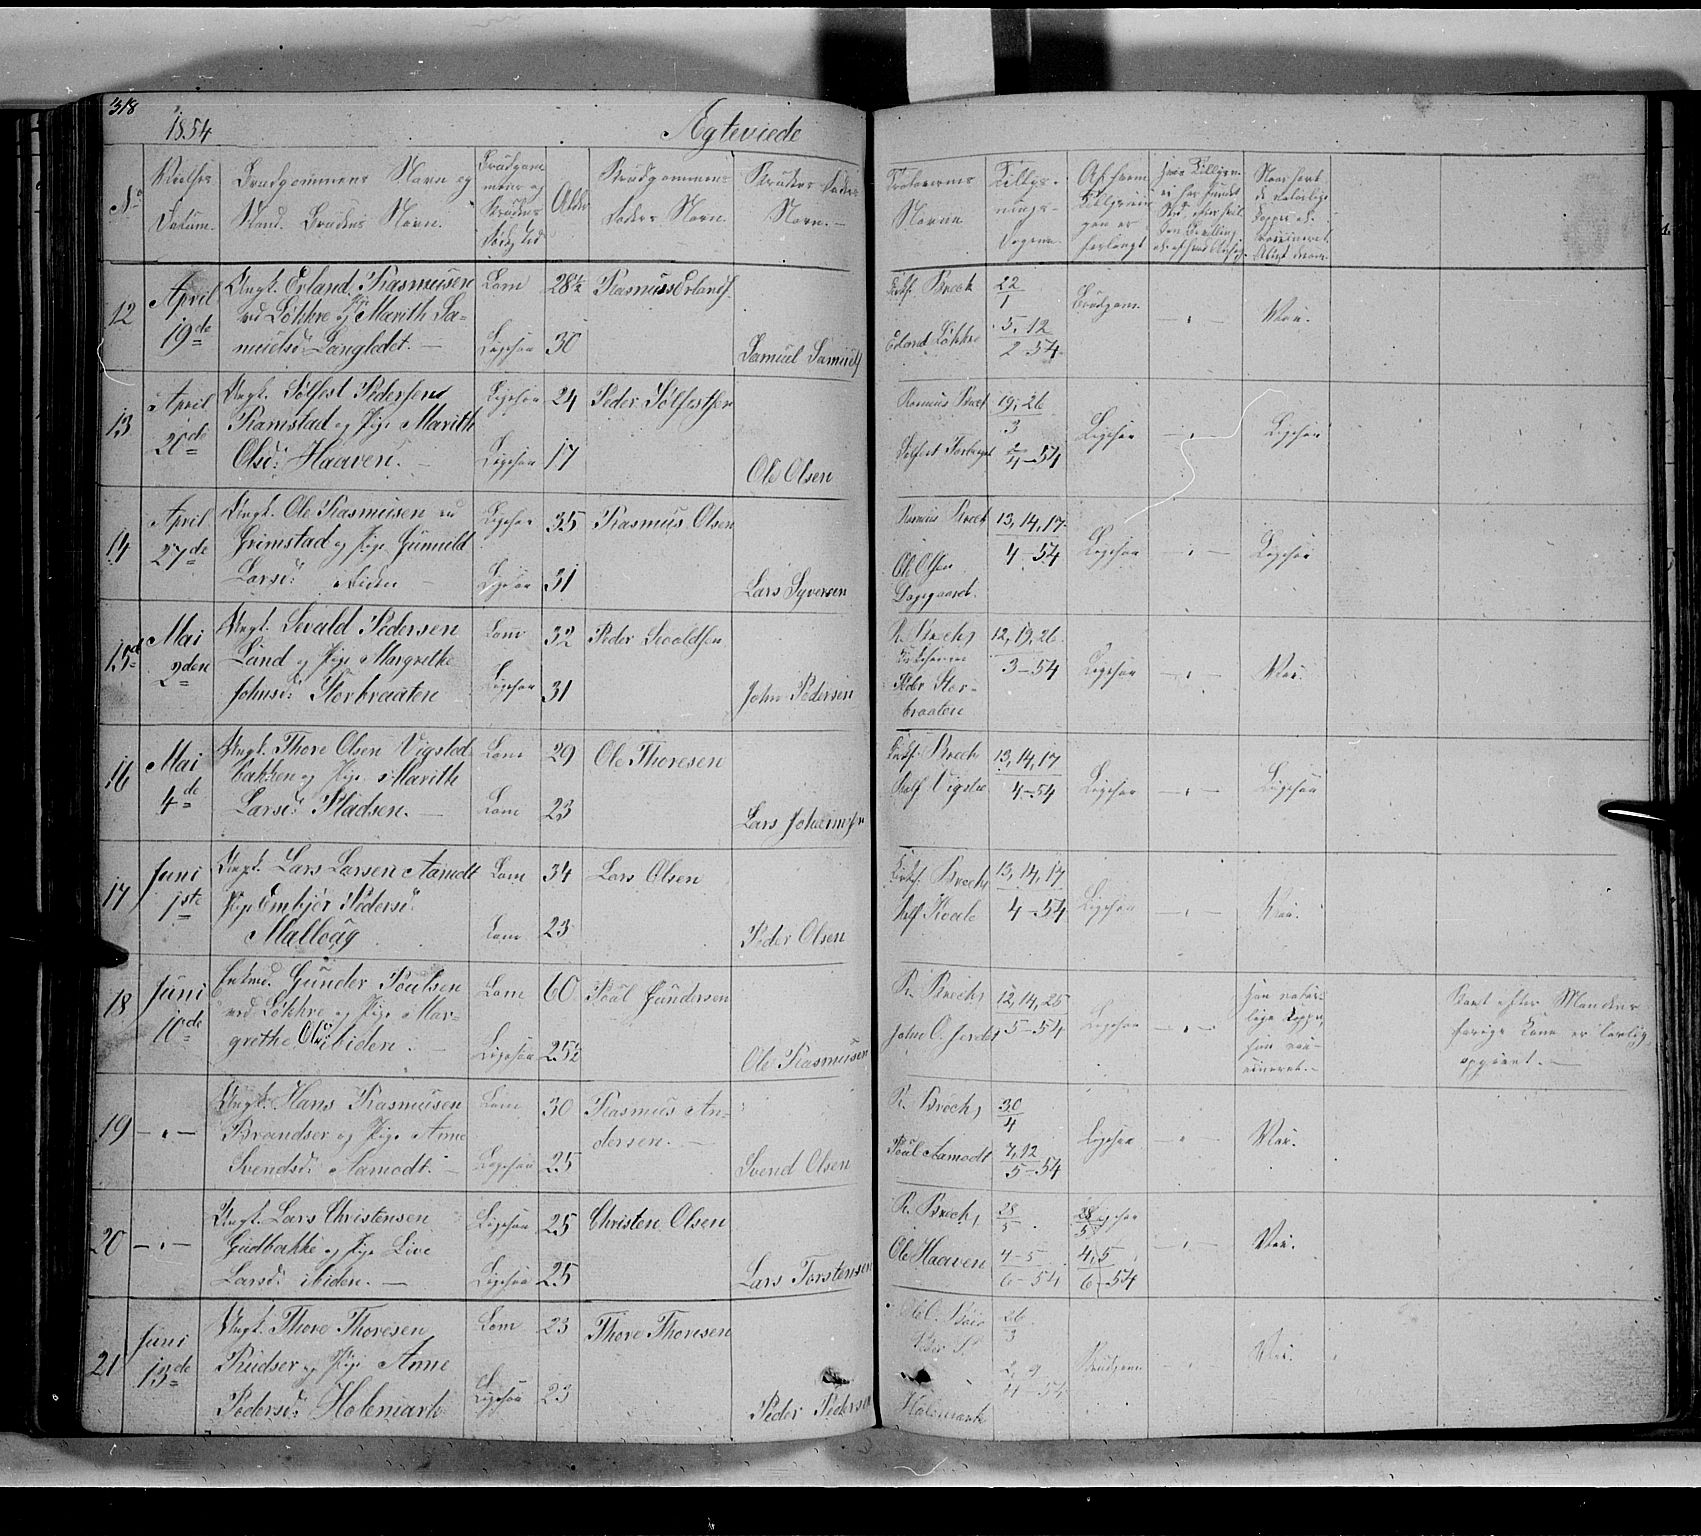 318
1854
Ægteviede
No
Vielses Datum.
Brudgommens Navn og Stand. Brudens Navn.
Brudgommens og Brudens Fødested
Alder
Brudgommens Faders Navn.
Brudens Faders Navn.
Forlovernes Navne
Tillysnings-Dagene.
Af hvem Tillysningen er forlangt
12
April 19de
Ungk. Erland Rasmusen
ved Løkkre og Pige Marith Sa-
muelsd: Langledet. —
Lom
Ligesaa
28½
30
Rasmus Erlands.
Samuel Samuels.
Kirks. Brech
Erland Løkkre
22/1
5, 12/2 54
Brudgom.
— " —
Vac.
13
April 20de
Ungk. Sølfest Pedersen
Ramstad og Pige Marith
Olsd: Haaven. —
Ligesaa
Ligesaa
24
17
Peder Sølfestsen
Ole Olsen
Rasmus Brech
19, 26/3
2/4 — 54
Ligesaa
— " —
Ligesaa
14
April 27de
Ungk. Ole Rasmusen ved
Grimstad og Pige Gunnild
Larsd: ibiden —
Ligesaa
Ligesaa
35
31
Rasmus Olsen
Lars Syversen
Rasmus Brech
Ole Olsen
Dagsgaard.
13, 14, 17
4 — 54
Ligesaa
— " —
Ligesaa
15de
Mai 2den
Ungk. Sivald Pedersen
Lund og Pige Margrethe
Johnsd: Storbraaten
Lom
Ligesaa
32
31
Peder Sivaldsen
John Pedersen
R. Brech,
Peder Stor-
braaten
12, 19, 26
3 — 54
Ligesaa
— " —
Vac.
16
Mai 4de
Ungk. Thore Olsen Vigsted
bakken og Pige Marith
Larsd: Pladsen. —
Lom
Lom
29
23
Ole Thoresen
Lars Johannsen
Kirks. Brech
13, 14, 17
4 — 54
Ligesaa
— " —
Ligesaa
17
Juni 1ste
Ungk. Lars Larsen Aamodt
Pige Embjør Pedersd.
Malloug
Lom
Lom
34
23
Lars Olsen
Peder Olsen
Kirks. Brech,
13, 14, 17
4 — 54
Ligesaa
— " —
Vac.
18
Juni 10de
Enkmd. Gunder Poulsen
ved Løkkre og Pige Mar-
grethe Olsd: ibiden. —
Lom
Ligesaa
60
25½
Poul Gundersen
Ole Rasmusen
R. Brech,
12, 14, 25
5 — 54
Ligesaa
— " —
han natur-
lige Kopper,
hun vac-
cineret. —
Skivt efter Mandens
forige Kone er lovlig
opgivet. —
19
— " —
Ungk. Hans Rasmusen
Brandser og Pige Anne
Svendsd: Aamodt. —
Lom
Ligesaa
30
25
Rasmus An-
dersen. —
Svend Olsen
R. Brech,
Poul Aamodt
30/4
7, 12/5 — 54
Ligesaa
— " —
Vac.
20
— " —
Ungk. Lars Christensen
Gudbakke og Pige Live
Larsd: ibiden. —
Ligesaa
Ligesaa
25
25
Christen Olsen
Lars Torstensen
R. Brech,
Ole Haaven
28/5
4 — 5/6 — 54
Ligesaa
28/5
4, 5/6 — 54
— " —
Vac.
21
Juni 13de
Ungk. Thore Thoresen
Rudser og Pige Anne
Pedersd: Holemark
Lom
Ligesaa
23
23
Thore Thoresen
Peder Pedersen
Holemark
26/3
2, 9/4 — 54
Brudgom.
— " —
Vac.